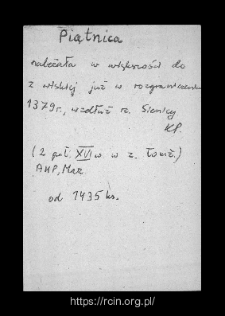 Piątnica
należała w większości do
z wiskiej już w rozgraniczeniu
1379 r., wzdłuż rz. Sienicy
KP.
(2 poł. XVI w. w z. łomż.)
AHP, Maz.
od 1435 ks.
https://rcin.org.pl/